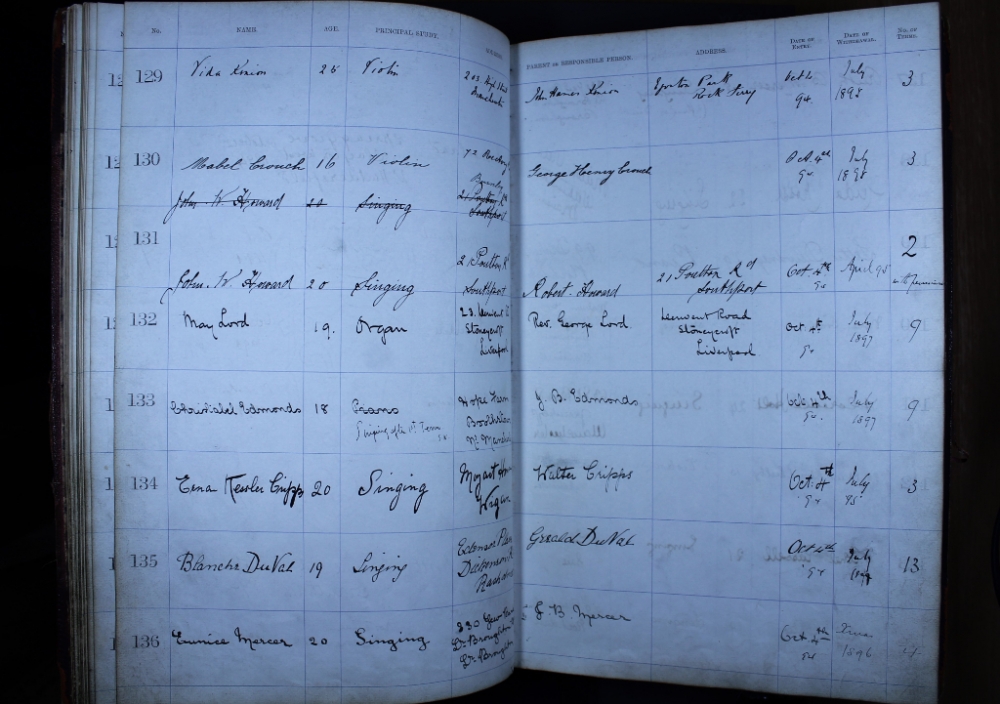 No. NAME. AGE. PRINCIPAL STUDY. PARENT OR RESPONSIBLE PERSON. ADDRESS. DATE OF ENTRY. DATE OF WITHDRAWAL. No. OF TERMS.
129 Vida Kinion 26 Violin 203 High Street John James Kinion Egerton Park Oct 4 July 3
Manchester Rock Ferry 94 1895
130 Mabel Crouch 16 Violin 72 George Henry Crouch Oct. 4th July 3
94 1895
John W. Howard 20 Singing 21 Poulton Rd
Southport
131 John. W. Howard 20 Singing 21 Poulton R Robert Howard 21 Poulton Rd Oct 4th April 95 2
Southport Southport 94
132 May Lord 19. Organ 23. Derwent R Rev. George Lord. Derwent Road Oct 4th July 9
Stoneycroft Stoneycroft 94 1897
Liverpool Liverpool
133 Edmonds 18 Piano Hope Farm J. B. Edmonds Oct. 4th July 9
Singing after 1st Term Boothstown 94. 1897
Nr. Manches
134 Kessler Cripps 20 Singing Mozart Ho Walter Cripps Oct. 4th July 3
Wigan 94 95
135 Blanche DuVal 19 Singing Gerald DuVal Oct 4th July 13
94
136 Eunice Mercer 20 Singing. 330 J. B. Mercer Oct 4th
Lr. Broughton 94 1896
Lr. Broughton